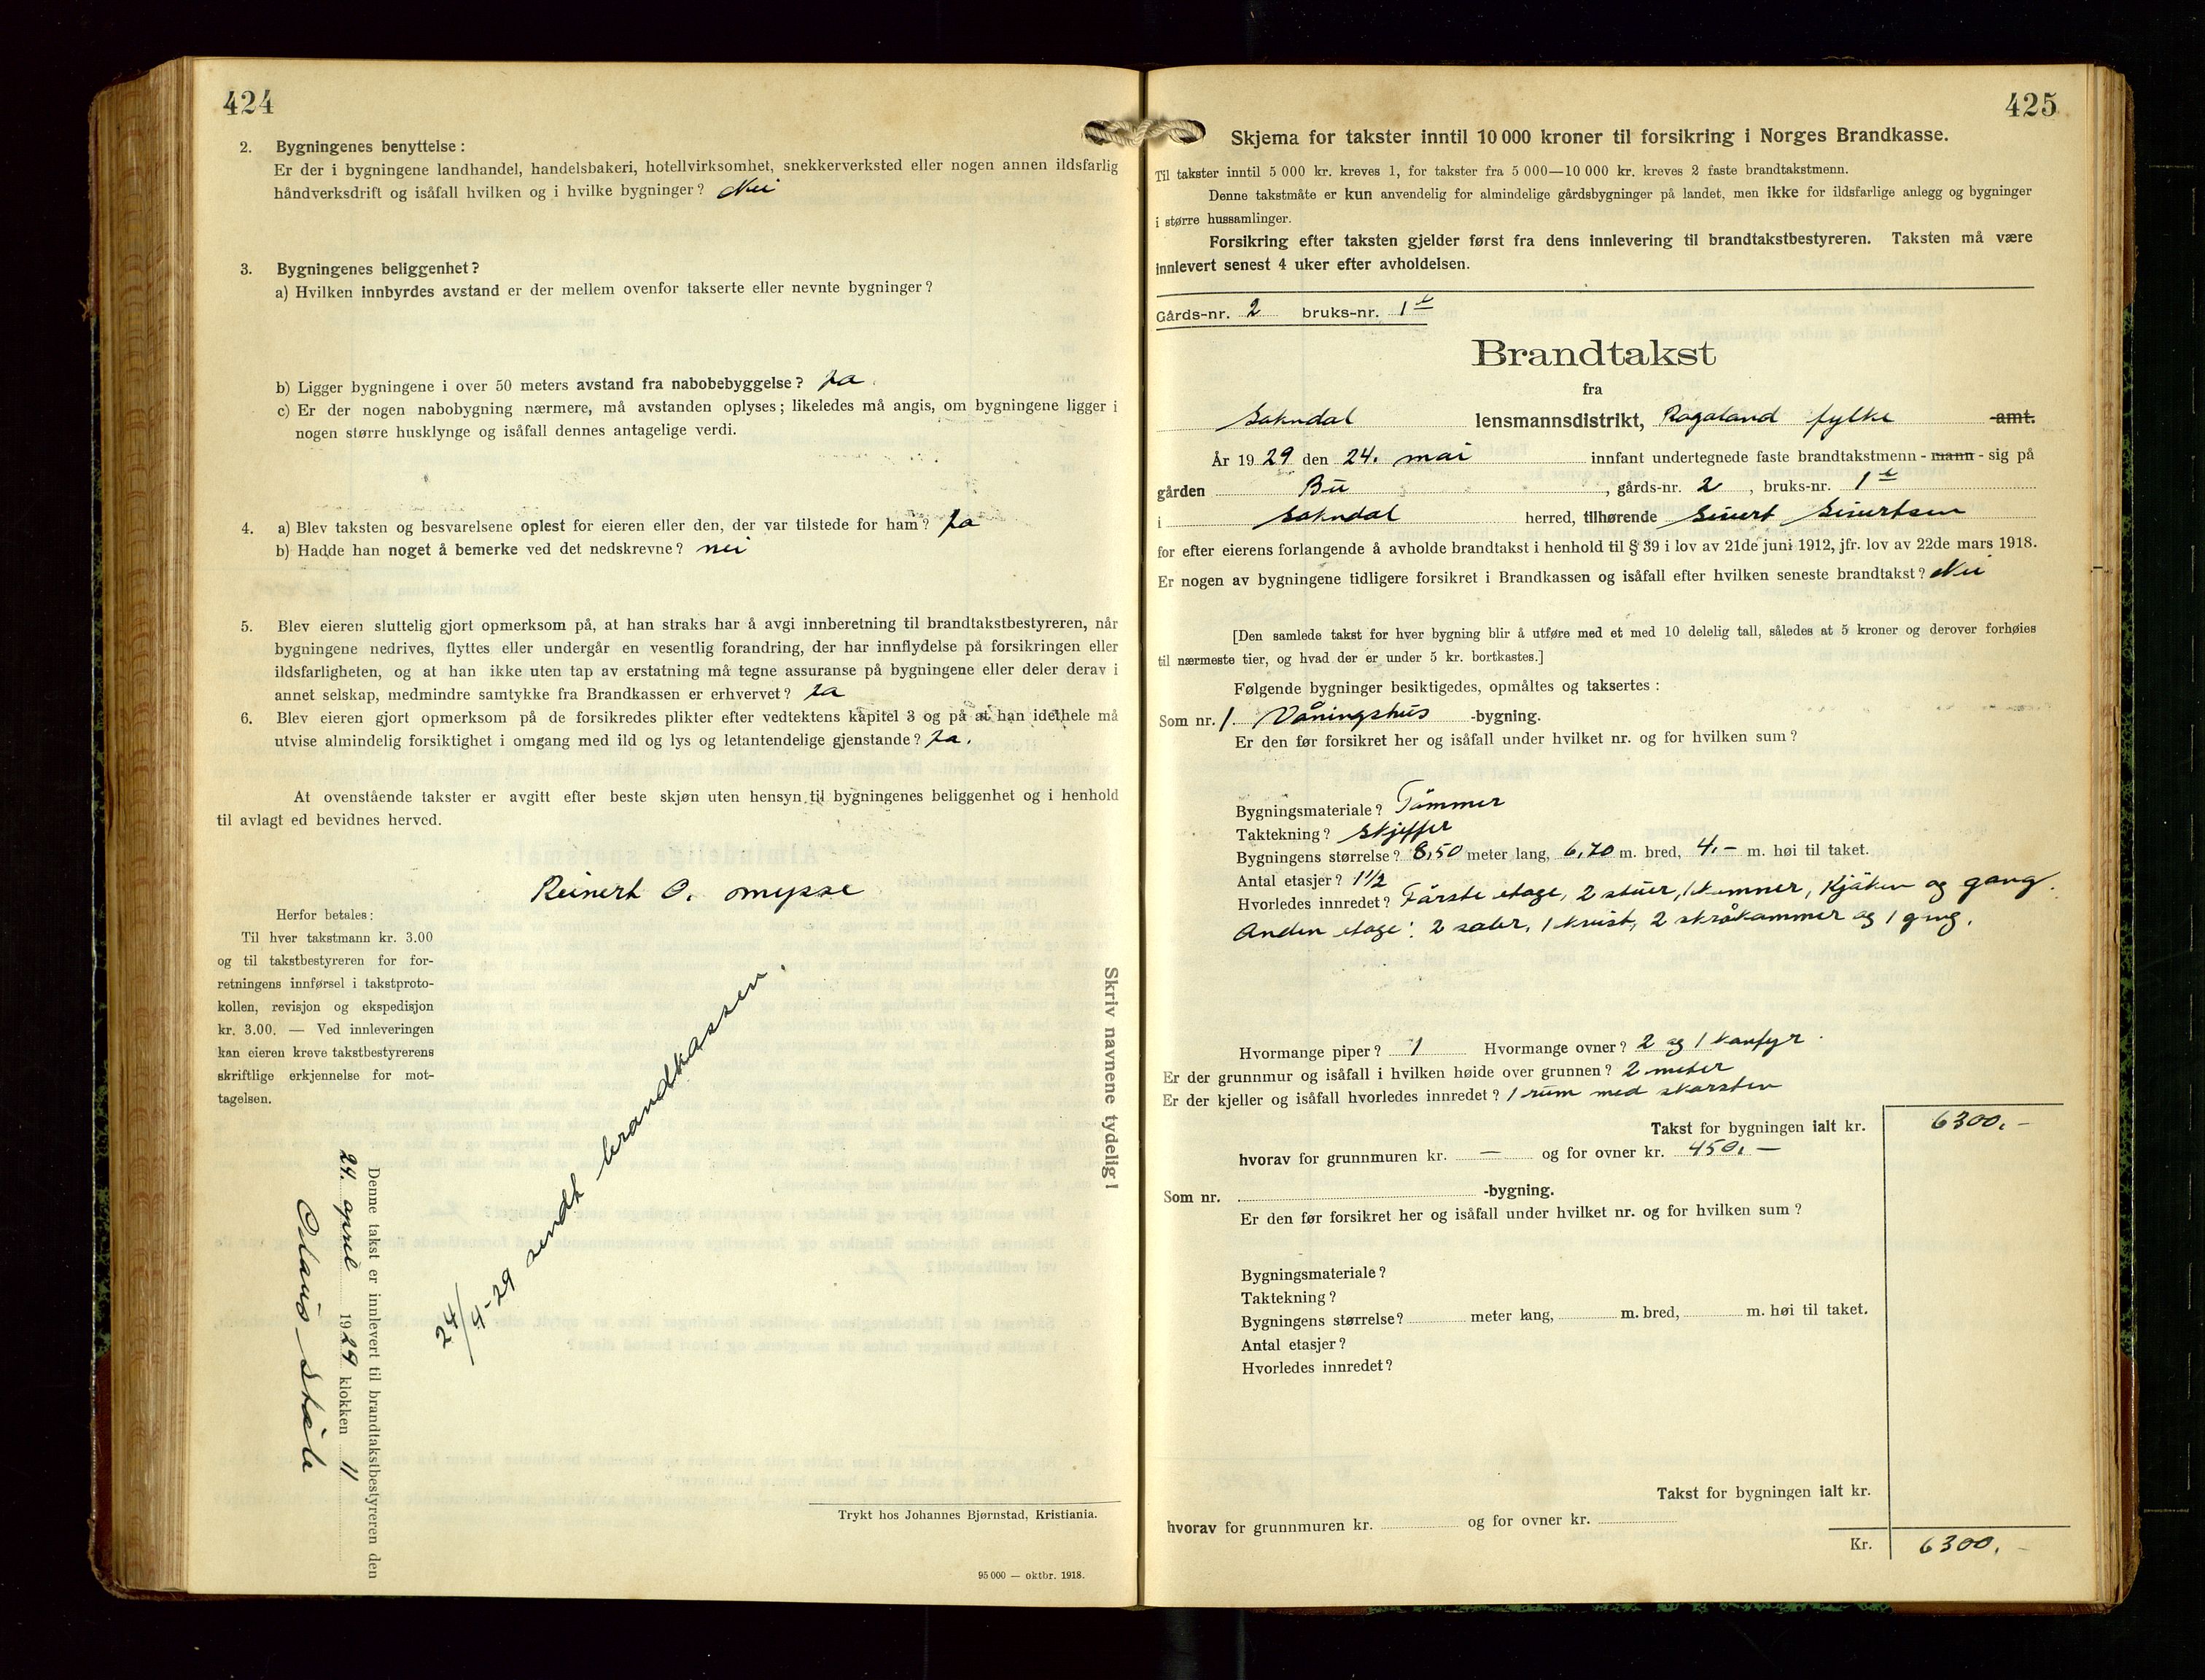 424
2. Bygningenes benyttelse:
Er der i bygningene landhandel, handelsbakeri, hotellvirksomhet, snekkerverksted eller nogen annen ildsfarlig
håndverksdrift og isåfall hvilken og i hvilke bygninger? Nei
3. Bygningenes beliggenhet?
a) Hvilken innbyrdes avstand er der mellem ovenfor takserte eller nevnte bygninger?
b) Ligger bygningene i over 50 meters avstand fra nabobebyggelse? Ja.
c) Er der nogen nabobygning nærmere, må avstanden oplyses; likeledes må angis, om bygningene ligger i
nogen større husklynge og isåfall dennes antagelige verdi.
4. a) Blev taksten og besvarelsene oplest for eieren eller den, der var tilstede for ham? Ja
b) Hadde han noget å bemerke ved det nedskrevne? nei
5. Blev eieren sluttelig gjort opmerksom på, at han straks har å avgi innberetning til brandtakstbestyreren, når
bygningene nedrives, flyttes eller undergår en vesentlig forandring, der har innflydelse på forsikringen eller
ildsfarligheten, og at han ikke uten tap av erstatning må tegne assuranse på bygningene eller deler derav i
annet selskap, medmindre samtykke fra Brandkassen er erhvervet? Ja
6. Blev eieren gjort opmerksom på de forsikredes plikter efter vedtektens kapitel 3 og på at han idethele må
utvise almindelig forsiktighet i omgang med ild og lys og letantendelige gjenstande? Ja.
At ovenstående takster er avgitt efter beste skjøn uten hensyn til bygningenes beliggenhet og i henhold
til avlagt ed bevidnes herved.
Reinert O. Mysse
Herfor betales:
Til hver takstmann kr. 3.00
og til takstbestyreren for for-
retningens innførsel i takstproto-
kollen, revisjon og ekspedisjon
kr. 3.00. — Ved innleveringen
kan eieren kreve takstbestyrerens
skriftlige erkjennelse for mot-
tagelsen.
Skriv navnene tydelig!
24/5-29 sendt brandkassen.
Denne takst er innlevert til brandtakstbestyreren den
24. april 1929 klokken 11
Olaus Ståle
Trykt hos Johannes Bjørnstad, Kristiania.
95 000 — oktbr. 1918.
425
Skjema for takster inntil 10 000 kroner til forsikring i Norges Brandkasse.
Til takster inntil 5 000 kr. kreves 1, for takster fra 5 000—10 000 kr. kreves 2 faste brandtakstmenn.
Denne takstmåte er kun anvendelig for almindelige gårdsbygninger på landet, men ikke for ildsfarlige anlegg og bygninger
i større hussamlinger.
Forsikring efter taksten gjelder først fra dens innlevering til brandtakstbestyreren. Taksten må være
innlevert senest 4 uker efter avholdelsen.
Gårds-nr. 2 bruks-nr. 1
Brandtakst
fra
Sokndal lensmannsdistrikt, Rogaland fylke amt.
År 1929 den 24. mai innfant undertegnede faste brandtakstmenn - mann - sig på
gården Bu, gårds-nr. 2, bruks-nr. 1
i Sokndal herred, tilhørende Sivert Sivertsen
for efter eierens forlangende å avholde brandtakst i henhold til § 39 i lov av 21de juni 1912, jfr. lov av 22de mars 1918.
Er nogen av bygningene tidligere forsikret i Brandkassen og isåfall efter hvilken seneste brandtakst? Nei
[Den samlede takst for hver bygning blir å utføre med et med 10 delelig tall, således at 5 kroner og derover forhøies
til nærmeste tier, og hvad der er under 5 kr. bortkastes.]
Følgende bygninger besiktigedes, opmåltes og taksertes:
Som nr. 1. Våningshus -bygning.
Er den før forsikret her og isåfall under hvilket nr. og for hvilken sum?
Bygningsmateriale? Tömmer
Taktekning? Skjeffer
Bygningens størrelse? 8,50 meter lang, 6,70 m. bred, 4.— m. høi til taket.
Antal etasjer? 1½
Hvorledes innredet? Förste etage, 2 stuer, 1 kammer, Kjöken og gang.
Anden etage: 2 saler, 1 kvist, 2 skråkammer og 1 gang.
Hvormange piper? 1 Hvormange ovner? 2 og 1 komfyr.
Er der grunnmur og isåfall i hvilken høide over grunnen? 2 meter
Er der kjeller og isåfall hvorledes innredet? 1 rum med skorsten
Takst for bygningen ialt kr. 6300.—
hvorav for grunnmuren kr. — og for ovner kr. 450.—
Som nr. -bygning.
Er den før forsikret her og isåfall under hvilket nr. og for hvilken sum?
Bygningsmateriale?
Taktekning?
Bygningens størrelse? meter lang, m. bred, m. høi til taket.
Antal etasjer?
Hvorledes innredet?
Takst for bygningen ialt kr.
hvorav for grunnmuren kr. og for ovner kr.
Kr. 6300.—